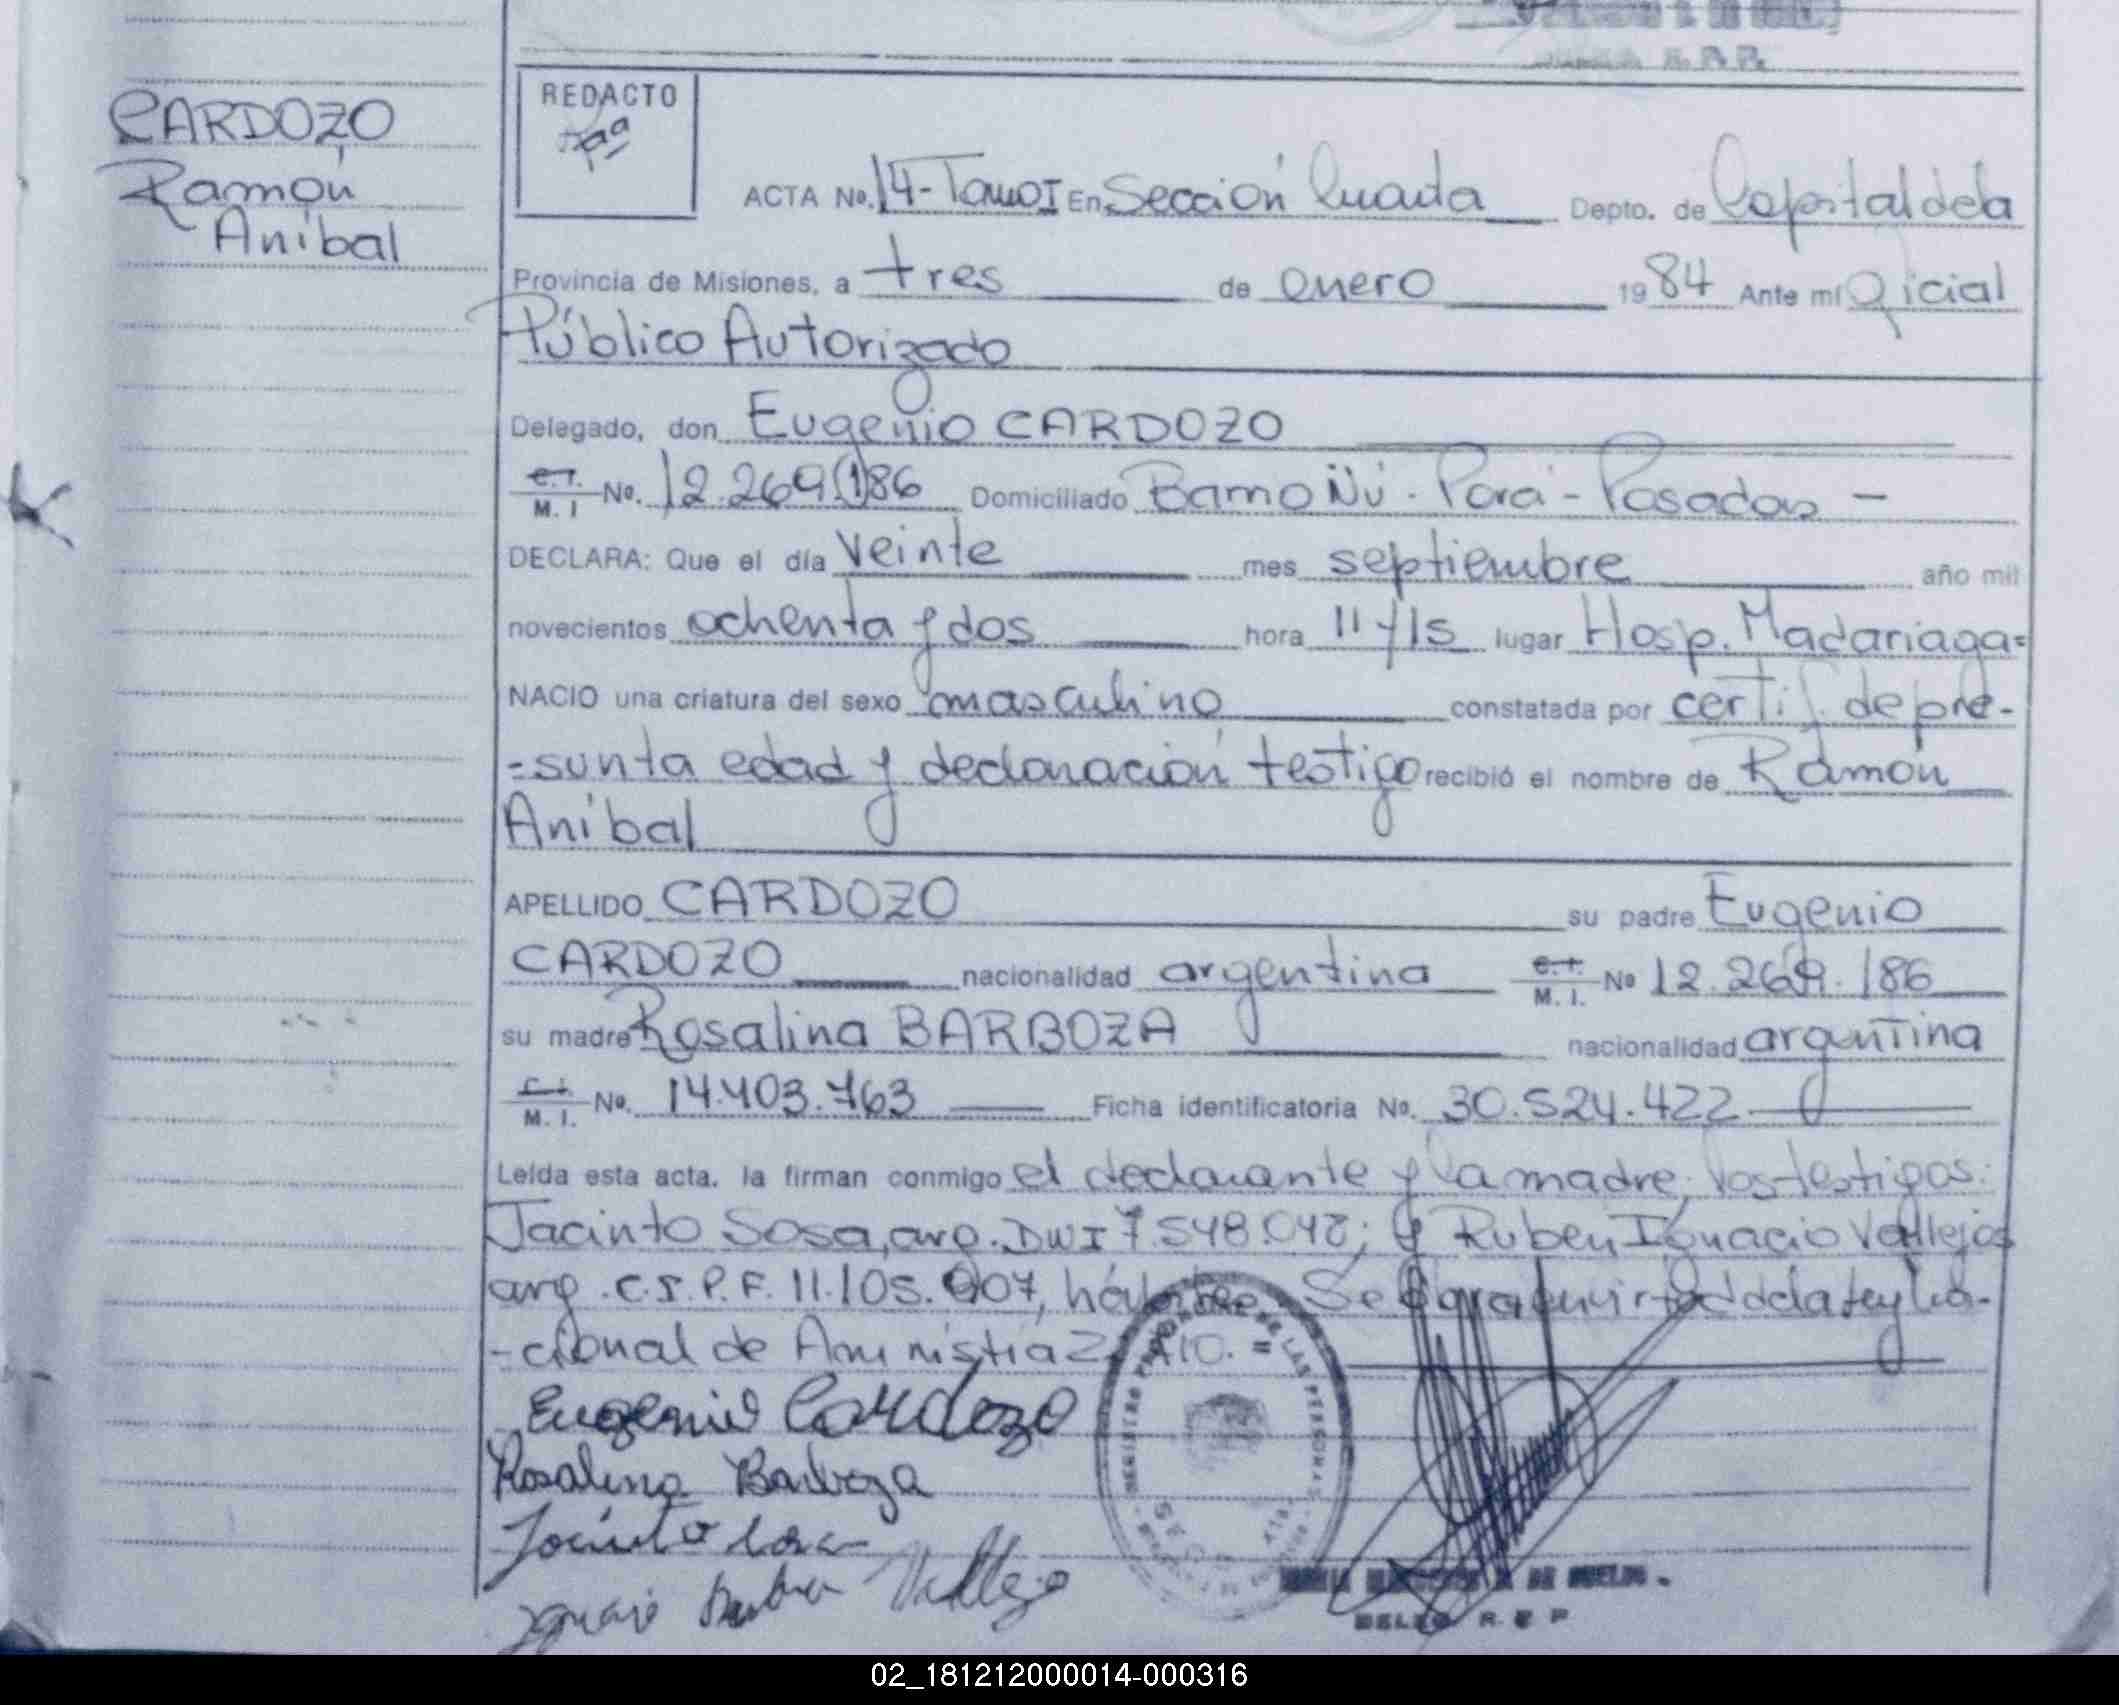 CARDOZO
Ramón
Aníbal
REDACTO
ACTA No. 14-Tomo I En Sección Cuarta Depto. de Capital de la
Provincia de Misiones, a tres de enero 1984 Ante mí Oficial
Público Autorizado
Delegado, don Eugenio CARDOZO
C.I. M. I No. 12.269.186 Domiciliado Barrio Ñú-Porá-Posadas-
DECLARA: Que el día veinte mes septiembre año mil
novecientos ochenta y dos hora 11 y 15 lugar Hosp. Madariaga=
NACIO una criatura del sexo masculino constatada por certif. de pre-
-sunta edad y declaración testigo recibió el nombre de Ramón
Aníbal
APELLIDO CARDOZO su padre Eugenio
CARDOZO nacionalidad argentina C.I. M. I. No 12.269.186
su madre Rosalina BARBOZA nacionalidad argentina
C.I. M. I. No. 14.403.763 Ficha identificatoria No. 30.524.422
Leída esta acta. la firman conmigo el declarante y la madre, los testigos:
Jacinto Sosa, arg. DNI 7.548.048; y Ruben Ignacio Vallejos
arg. C.I.P.F. 11.105.907, hábiles. Se labra en virtud de la Ley Na-
-cional de Aministía =
Eugenio Cardozo
Rosalina Barboza
Jacinto Sosa
Ignacio Ruben Vallejo
REGISTRO PROVINCIAL DE LAS PERSONAS
DELEG. R. P. P.
02_181212000014-000316